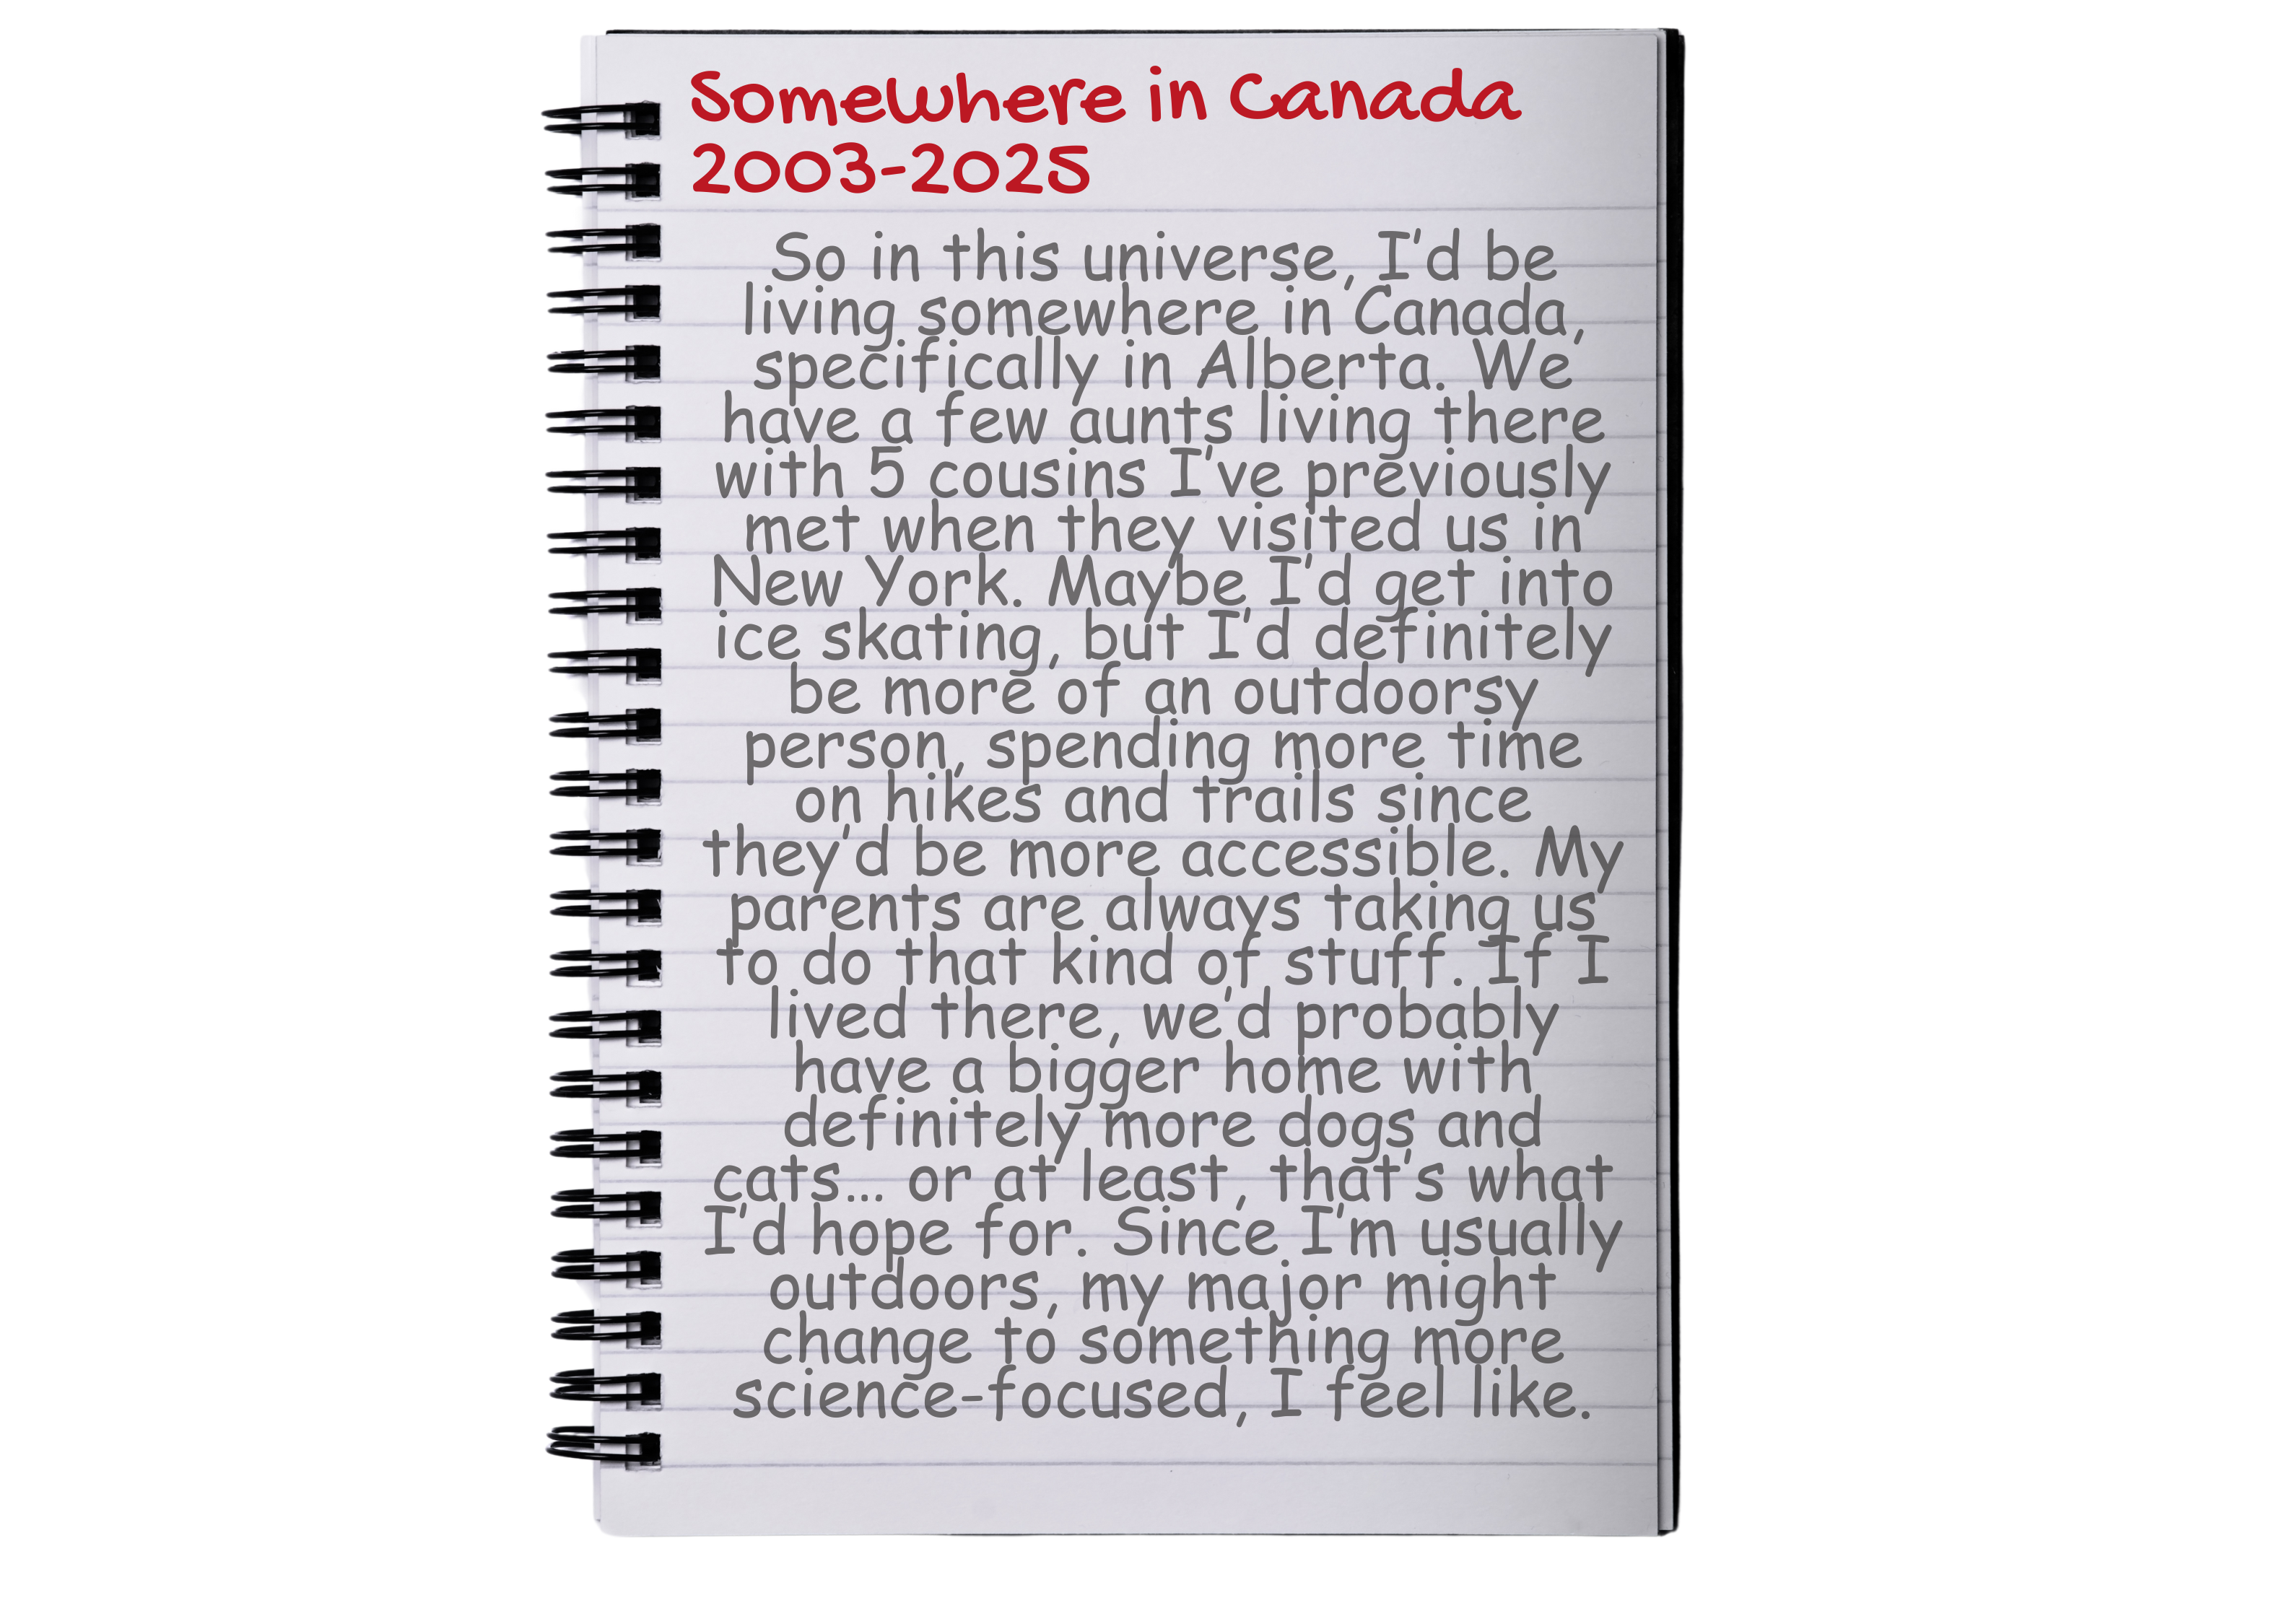 Somewhere in Canada
2003-2025
So in this universe, I'd be
living somewhere in Canada,
specifically in Alberta. We
have a few aunts living there
with 5 cousins I've previously
met when they visited us in
New York. Maybe I'd get into
ice skating, but I'd definitely
be more of an outdoorsy
person, spending more time
on hikes and trails since
they'd be more accessible. My
parents are always taking us
to do that kind of stuff. If I
lived there, we'd probably
have a bigger home with
definitely more dogs and
cats... or at least, that's what
I'd hope for. Since I'm usually
outdoors, my major might
change to something more
science-focused, I feel like.